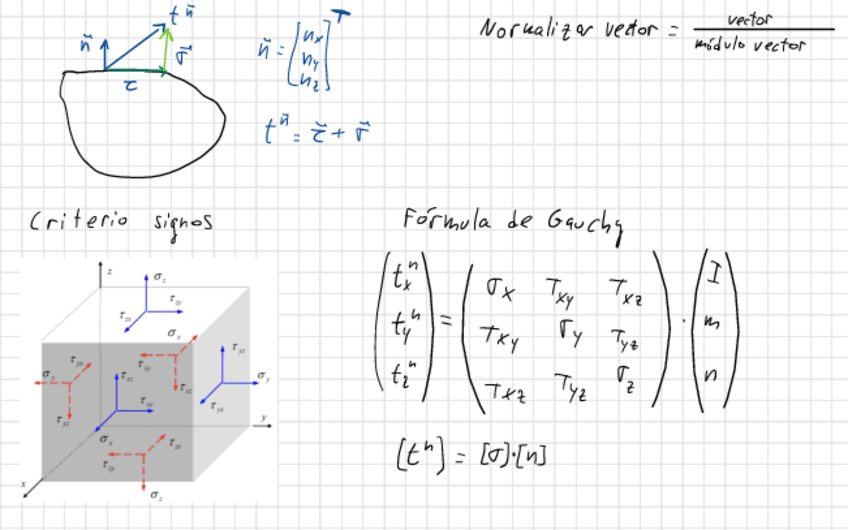 t n⃗
n⃗
σ⃗
τ
n⃗ = [nx ny nz]^T
t^n⃗ = τ⃗ + σ⃗
Normalizar vector = vector / módulo vector
Criterio signos
z
σz
τzy
τzx
σx
τyx
τxy
τyz
σy
τxz
τxz
τyz
σy
τxy
τyz
τyx
σx
τzx
τzy
y
x
σz
Fórmula de Gauchy
(tx^n ty^n tz^n) = (σx Txy Txz
Txy σy Tyz
Txz Tyz σz) · (I m n)
[t^n] = [σ]·[n]